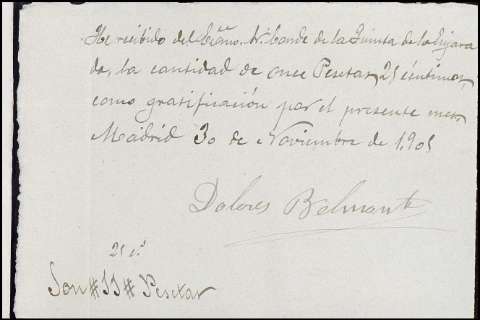 He recibido del Exmo. Sr. Conde de la Quinta de la Enjara
da, la cantidad de once Pesetas, 25 céntimos,
como gratificación por el presente mes
Madrid 30 de Noviembre de 1.905
Dolores Belmonte
25 cs.
Son # 11 # Pesetas